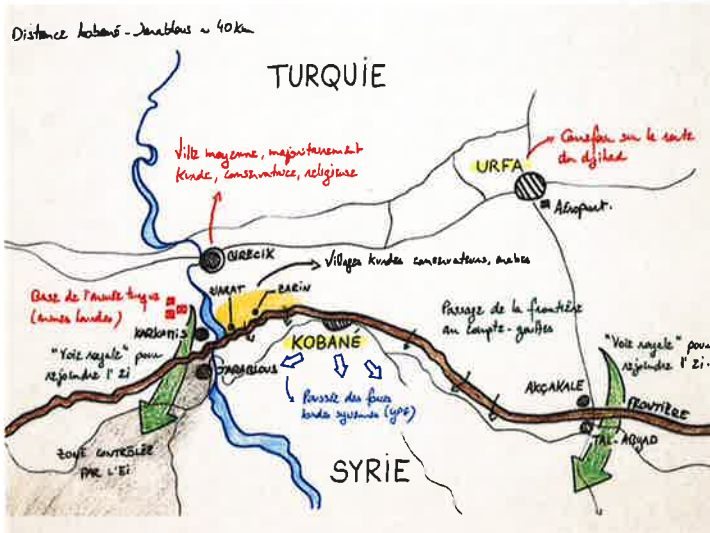 Distance Kobané - Jarablous ~ 40 km
TURQUIE
Ville moyenne, majoritairement
Kurde, conservatrice, religieuse
Carrefour sur la route
du djihad
URFA
Aéroport
BIRECIK
Villages Kurdes conservateurs, arabes
Base de l'armée turque
(armes lourdes)
ZIARAT
ZARIN
KARKAMIS
Passage de la frontière
au compte-gouttes
"Voie royale" pour
rejoindre l'EI
KOBANÉ
"Voie royale" pour
rejoindre l'EI.
JARABLOUS
Poussée des forces
kurdes syriennes (YPG)
AKÇAKALE
FRONTIÈRE
TAL-ABYAD
ZONE CONTRÔLÉE
PAR L'EI
SYRIE